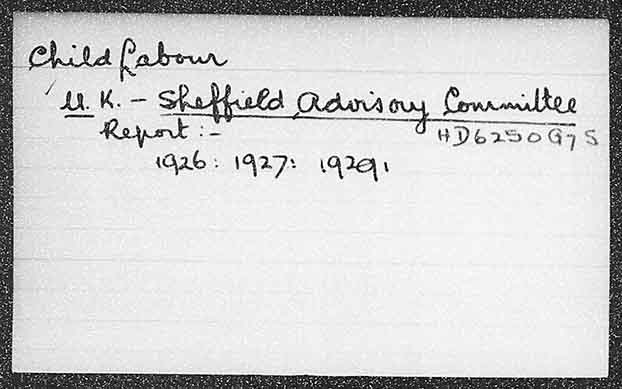 Child Labour
U. K. - Sheffield Advisory Committee
Report :- HD6250G7S
1926 : 1927 : 1929,